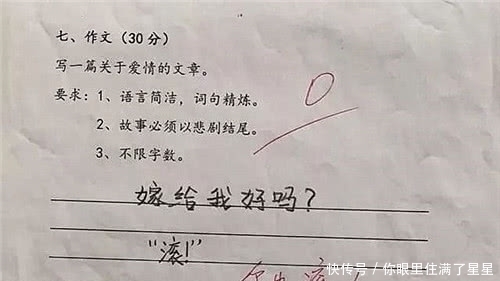 七、作文（30分）
写一篇关于爱情的文章。
要求：1、语言简洁，词句精炼。
2、故事必须以悲剧结尾。
3、不限字数。
0
嫁给我好吗？
“滚！”
快传号／你眼里住满了星星